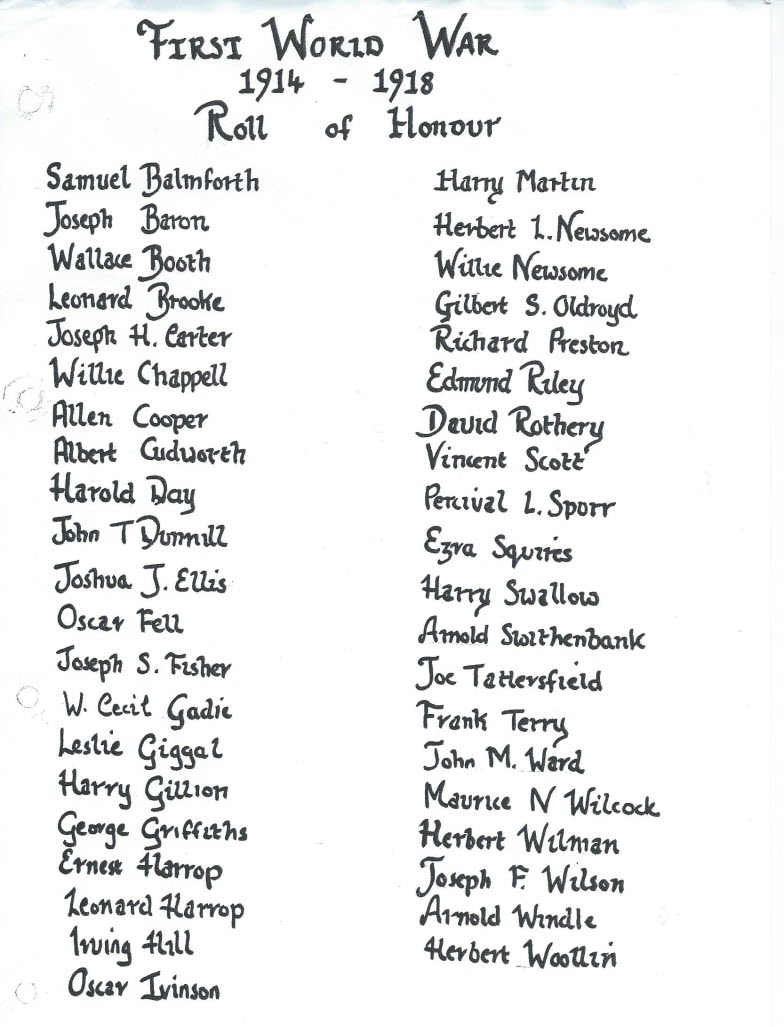 First World War
1914 - 1918
Roll of Honour
Samuel Balmforth
Joseph Baron
Wallace Booth
Leonard Brooke
Joseph H. Carter
Willie Chappell
Allen Cooper
Albert Cudworth
Harold Day
John T Dunnill
Joshua J. Ellis
Oscar Fell
Joseph S. Fisher
W. Cecil Gadie
Leslie Giggal
Harry Gillion
George Griffiths
Ernest Harrop
Leonard Harrop
Irving Hill
Oscar Ivinson
Harry Martin
Herbert L. Newsome
Willie Newsome
Gilbert S. Oldroyd
Richard Preston
Edmund Riley
David Rothery
Vincent Scott
Percival L. Sporr
Ezra Squires
Harry Swallow
Arnold Swithenbank
Joe Tattersfield
Frank Terry
John M. Ward
Maurice N Wilcock
Herbert Wilman
Joseph F. Wilson
Arnold Windle
Herbert Woollin